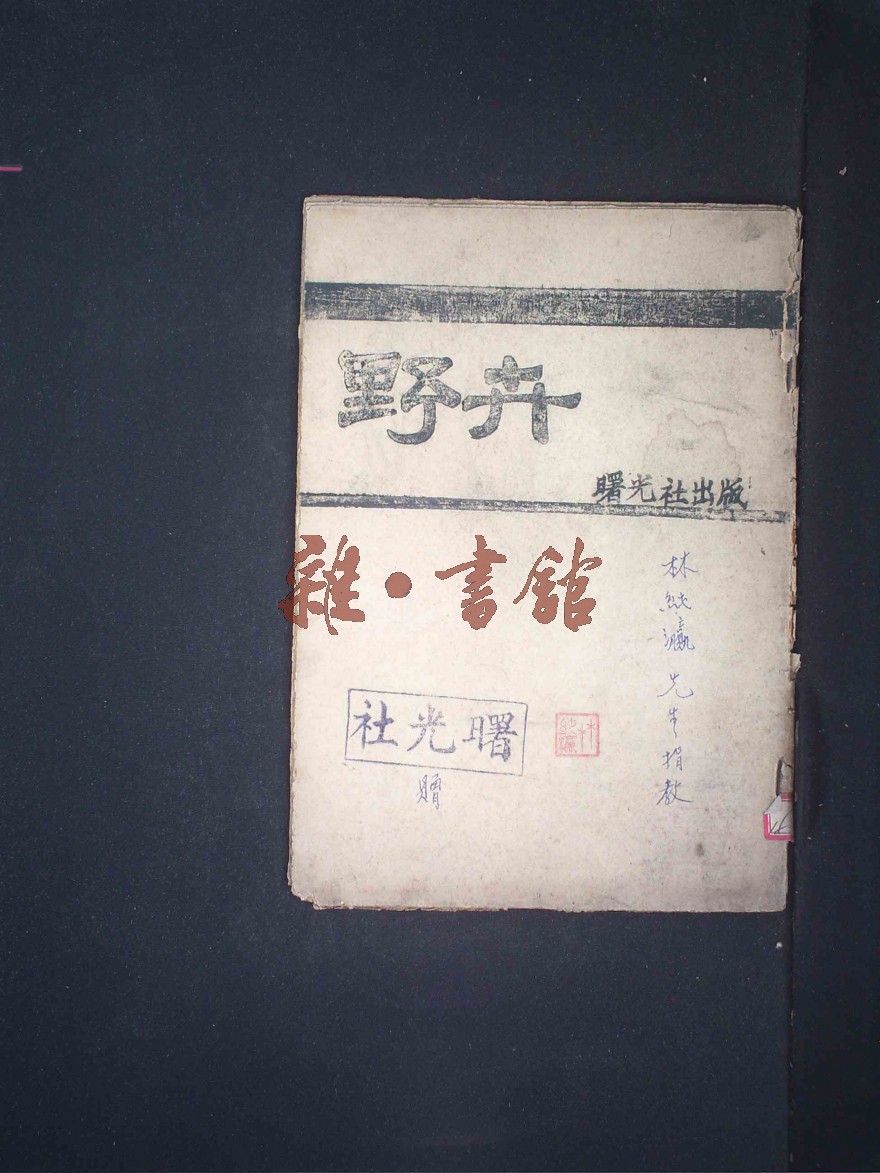 野卉
曙光社出版
雜·書館
林純瀛先生指教
社光曙
贈